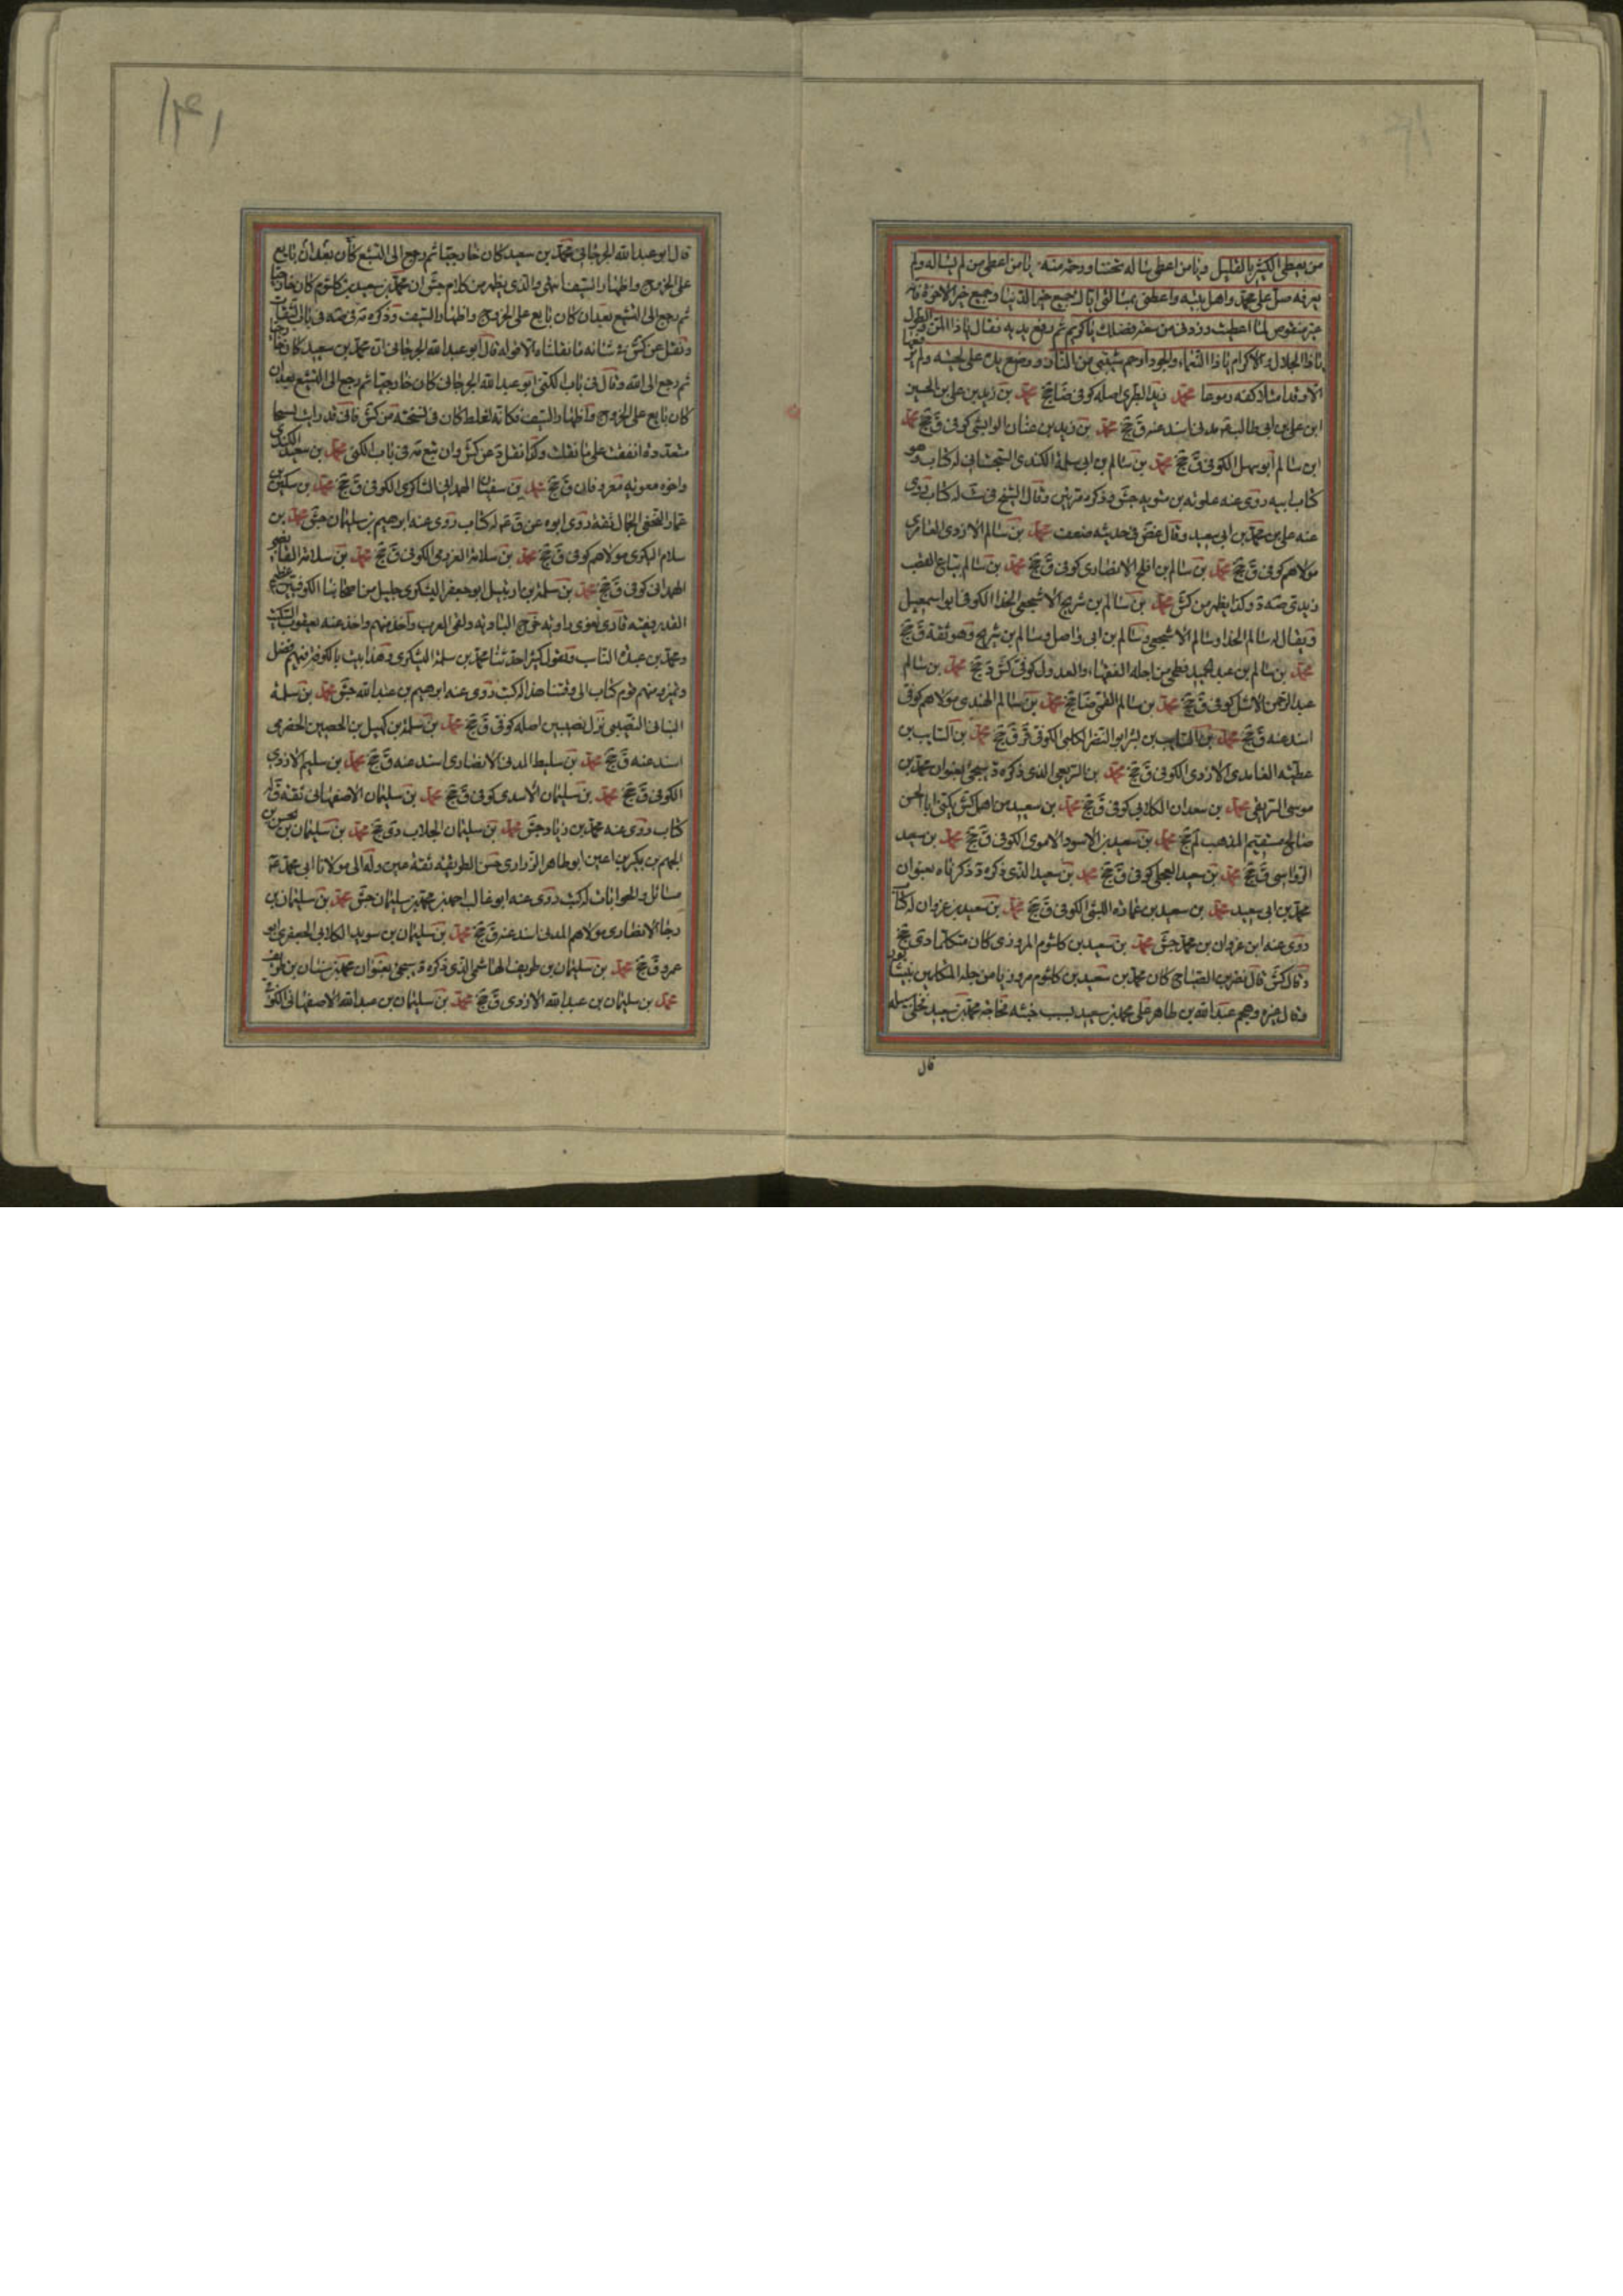 من يعطى الكثير بالقليل ويا من اعطى من ساله تحننا منه ورحمة يا من اعطى من لم يساله ولم
يعرفه صل على محمد واهل بيته واعطنى بمسالتى اياك جميع خير الدنيا وجميع خير الاخرة فانه
غير منقوص لما اعطيت وزدنى من سعة فضلك يا كريم ثم رفع يديه فقال يا ذا المن والطول
يا ذا الجلال والاكرام يا ذا النعماء والجود ارحم شيبتى من النار ووضع يده على لحيته ولم يرفعها
الا وقد امتلا ظهر كفه دموعا محمد بن زيد الطبرى اصله كوفى ضا جخ محمد بن زيد بن على بن الحسين
ابن على بن ابى طالب مدنى اسند عنه ق جخ محمد بن زيد بن الوابشى كوفى ق جخ محمد
ابن سالم ابو سهل الكوفى ق جخ محمد بن سالم بن ابى سلمة الكندى السجستانى له كتاب وهو
كتاب ابيه روى عنه علويه بن متويه جش وذكره مرتين وقال الشيخ فى ست له كتاب روى
عنه على بن محمد بن ابى سعيد وقال غض فى حديثه ضعف محمد بن سالم الازدى الغامرى
مولاهم كوفى ق جخ محمد بن سالم بن افلح الانصارى كوفى ق جخ محمد بن سالم بياع القصب
زيدى صه د وكذا يظهر من كش محمد بن سالم بن شريح الاشجعى الحذا الكوفى ابو اسمعيل
ويقال له سالم الحذا وسالم الاشجعى وسالم بن ابى واصل وسالم بن شريح وهو ثقة ق جخ
محمد بن سالم بن عبد الحميد فطحى من اجلة الفقهاء والعدول كوفى كش د جخ محمد بن سالم
عبد الرحمن الاشل كوفى ق جخ محمد بن سالم القمى ضا جخ محمد بن سالم الهندى مولاهم كوفى
اسند عنه ق جخ محمد بن السايب بن بشر ابو النضر الكلبى الكوفى قر ق جخ محمد بن السايب بن
عطية الغامدى الازدى الكوفى ق جخ محمد بن الربعى الذى ذكره د سيجئ بعنوان محمد بن
موسى الربعى محمد بن سعدان الكلابى كوفى ق جخ محمد بن سعيد من اهل كش يكنى ابا الحسن
صالح مستقيم المذهب لم جخ محمد بن سعيد بن الاسود الاموى الكوفى ق جخ محمد بن سعيد
الرواسى ق جخ محمد بن سعيد العجلى كوفى ق جخ محمد بن سعيد الذى ذكره د ذكرناه بعنوان
محمد بن ابى سعيد محمد بن سعيد بن عمارة الليثى الكوفى ق جخ محمد بن سعيد بن غزوان له كتاب
روى عنه ابن غزوان بن محمد جش محمد بن سعيد بن كلثوم المروزى كان متكلما دى جخ
وقال كش قال نصر بن الصباح كان محمد بن سعيد بن كلثوم مروزيا من جلة المتكلمين بنيشابور
وقال غيره وهجم عبد الله بن طاهر على محمد بن سعيد بسبب خبثه فحاجه محمد بن سعيد فخلى سبيله
قال
۱۴۱
قال ابو عبد الله الجرجانى محمد بن سعيد كان خارجيا ثم رجع الى التشيع كان بعد ان بايع
على الخروج واظهار السيف انتهى والذى يظهر من كلام جش ان محمد بن سعيد بن كلثوم كان خارجيا
ثم رجع الى التشيع بعد ان كان بايع على الخروج واظهار السيف وذكره
ونقل عن كش فى شانه ما نقلناه الا قوله قال ابو عبد الله الجرجانى ان محمد بن سعيد كان خارجيا
ثم رجع الى الله وقال فى باب الكنى ابو عبد الله الجرجانى كان خارجيا ثم رجع الى التشيع بعد ان
كان بايع على الخروج واظهار السيف فكانه لغلط كان فى نسخته من كش فانى قد رايت نسخا
متعددة اتفقت على ما نقلت وكذا نقله د عن كش وان تبع فى باب الكنى محمد بن سعيد الكندى
واخوه معوية معروفان ق جخ محمد بن سفيان الهمدانى الشاكرى الكوفى ق جخ محمد بن سكين بن
عمار النخعى الجمال ثقة روى ابوه عن ق ع له كتاب روى عنه ابرهيم بن سليمان جش محمد بن
سلام البكرى مولاهم كوفى ق جخ محمد بن سلامة العزرمى الكوفى ق جخ محمد بن سلامة
الهمدانى كوفى ق جخ محمد بن سلمة بن ارتبيل ابو جعفر اليشكرى جليل من اصحابنا الكوفيين عظيم
القدر فقيه قارى لغوى راوية خرج البادية ولقى العرب واخذ منهم واخذ عنه يعقوب السكيت
ومحمد بن عبده الناب ويقول كثيرا حدثنا محمد بن سلمة اليشكرى وهذا بيت بالكوفة فيهم فضل
وتميز ومنهم قوم كتاب الى وقتنا هذا له كتب روى عنه ابرهيم بن عبد الله جش محمد بن سلمة
النصيبى نزل نصيبين اصله كوفى ق جخ محمد بن سلمة بن كهيل بن الحصين الحضرمى
اسند عنه ق جخ محمد بن سليط المدنى الانصارى اسند عنه ق جخ محمد بن سليم الازدى
الكوفى ق جخ محمد بن سليمان الاسدى كوفى ق جخ محمد بن سليمان الاصفهانى ثقة ق له
كتاب روى عنه محمد بن زياد جش محمد بن سليمان الجلاب دى جخ محمد بن سليمان بن الحسن بن
الجهم بن بكير بن اعين ابو طاهر الزرارى حسن الطريقة ثقة عين وله الى مولانا ابى محمد ع
مسائل والجوابات له كتب روى عنه ابو غالب احمد بن محمد بن سليمان جش محمد بن سليمان بن
رجا الانصارى مولاهم المدنى اسند عنه ق جخ محمد بن سليمان بن سويد الكلابى الجعفرى ابو
عمرو ق جخ محمد بن سليمان بن طريف الهاشمى الذى ذكره د سيجئ بعنوان محمد بن سنان بن طريف
محمد بن سليمان بن عبد الله الازدى ق جخ محمد بن سليمان بن عبد الله الاصفهانى الكوفى